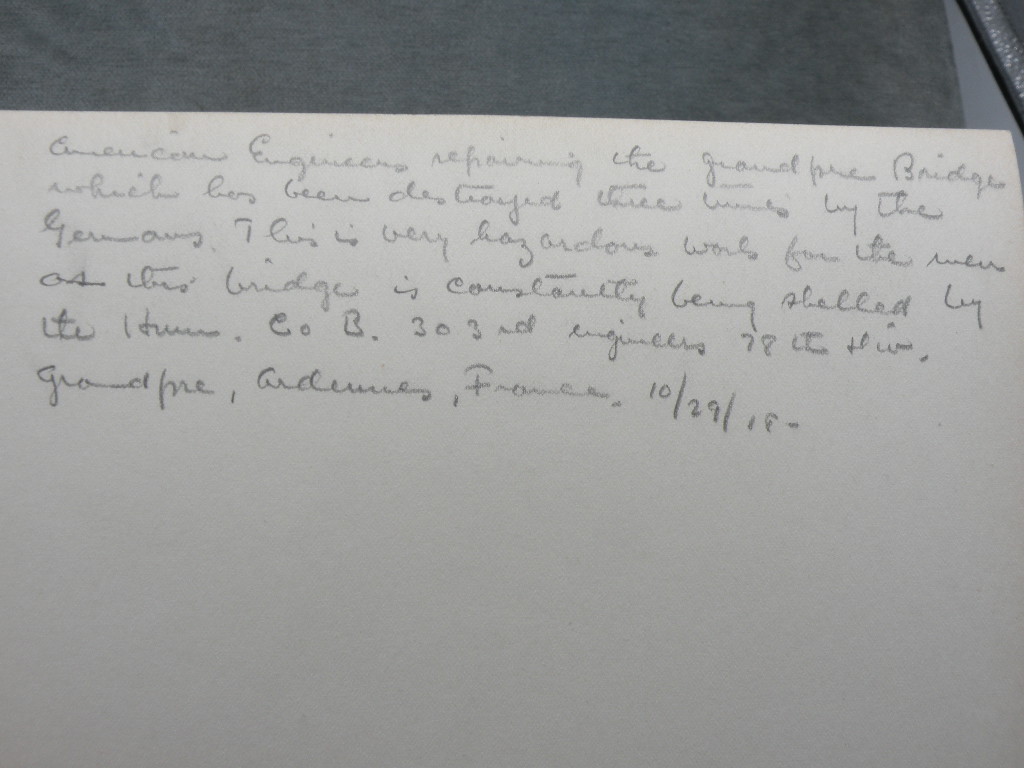 American Engineers repairing the Grandpre Bridge
which has been destroyed three times by the
Germans. This is very hazardous work for the men
as this bridge is constantly being shelled by
the Huns. Co B. 303rd engineers 78th Div.
Grandpre, Ardennes, France. 10/29/18-